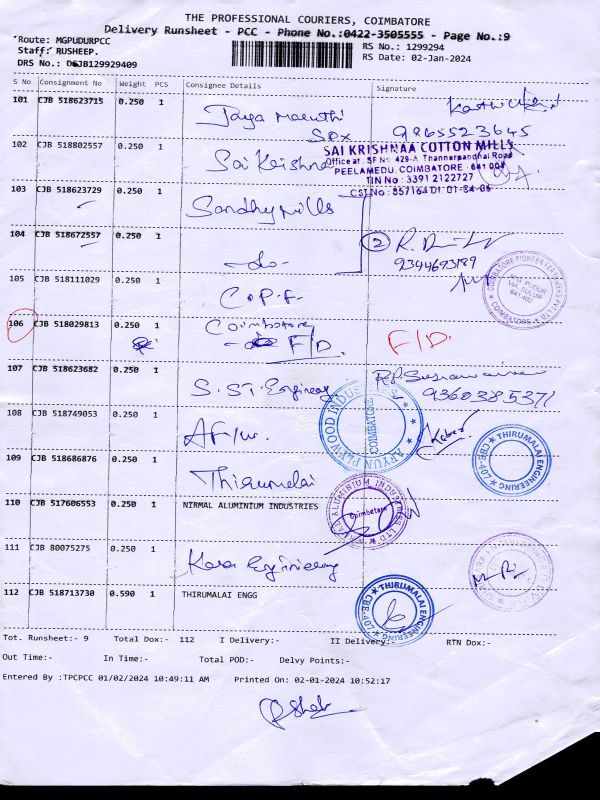 THE PROFESSIONAL COURIERS, COIMBATORE
Delivery Runsheet - PCC - Phone No.:0422-3505555 - Page No.:9
Route: MGPUDURPCC
RS No.: 1299294
Staff: RUSHEEP.
RS Date: 02-Jan-2024
DRS No.: DCJB129929409
S No Consignment No Weight PCS Consignee Details Signature
101 CJB 518623715 0.250 1 Jaya maruthi
Sox 9865523645
102 CJB 518802557 0.250 1 Sai Krishna
SAI KRISHNAA COTTON MILLS
Office at: SF No: 429-A, Thannerpandhal Road
PEELAMEDU, COIMBATORE - 641 004
TIN No : 33912122727
CST No : 857164 Dt: 01-04-06
103 CJB 518623729 0.250 1 Sandhy mills
104 CJB 518672557 0.250 1 -do-
2 R.
9344693189
105 CJB 518111029 0.250 1 C.P.F.
COIMBATORE PIONEER FERTILIZERS LTD
MUTHUGOUNDEN PUDUR
VIA SULUR
641 402
COIMBATORE
106 CJB 518029813 0.250 1 Coimbatore
F/D. F/D.
107 CJB 518623682 0.250 1 S.ST. Engineeg
9360385371
108 CJB 518749053 0.250 1 AF/w.
Kabar
ARYUN PLYWOOD INDUSTRIES
COIMBATORE
THIRUMALAI ENGINEERING
CBE-407
109 CJB 518686876 0.250 1 Thirumalai
110 CJB 517606553 0.250 1 NIRMAL ALUMINIUM INDUSTRIES
ALUMINIUM INDUSTRIES LTD
Coimbatore
111 CJB 80075275 0.250 1 Kara Engineering
112 CJB 518713730 0.590 1 THIRUMALAI ENGG
THIRUMALAI ENGINEERING
CBE-407
Tot. Runsheet:- 9 Total Dox:- 112 I Delivery:- II Delivery:- RTN Dox:-
Out Time:- In Time:- Total POD:- Delvy Points:-
Entered By :TPCPCC 01/02/2024 10:49:11 AM Printed On: 02-01-2024 10:52:17